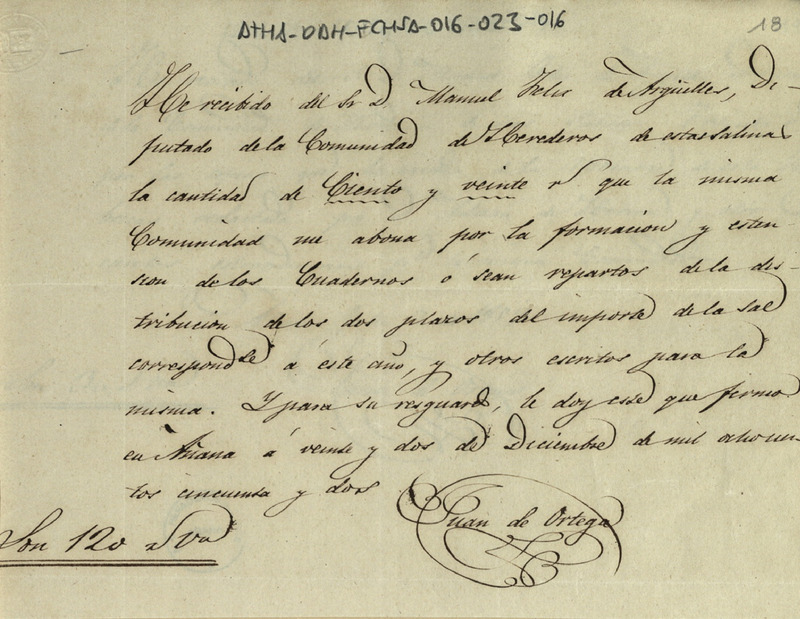 ATHA-DAH-FCHSA-016-023-016
18
He recibido del Sr. D. Manuel Felix de Argüelles, Di-
putado de la Comunidad de Herederos de estas Salinas
la cantidad de Ciento y veinte rs que la misma
Comunidad me abona por la formacion y esten-
sion de los Cuadernos ó sean repartos de la dis-
tribucion de los dos plazos del importe de la sal
correspondte á este año, y otros escritos para la
misma. Y para su resguardo, le doy este que firmo
en Añana á veinte y dos de Diciembre de mil ochocien-
tos cincuenta y dos
Juan de Ortega
Son 120 rs von